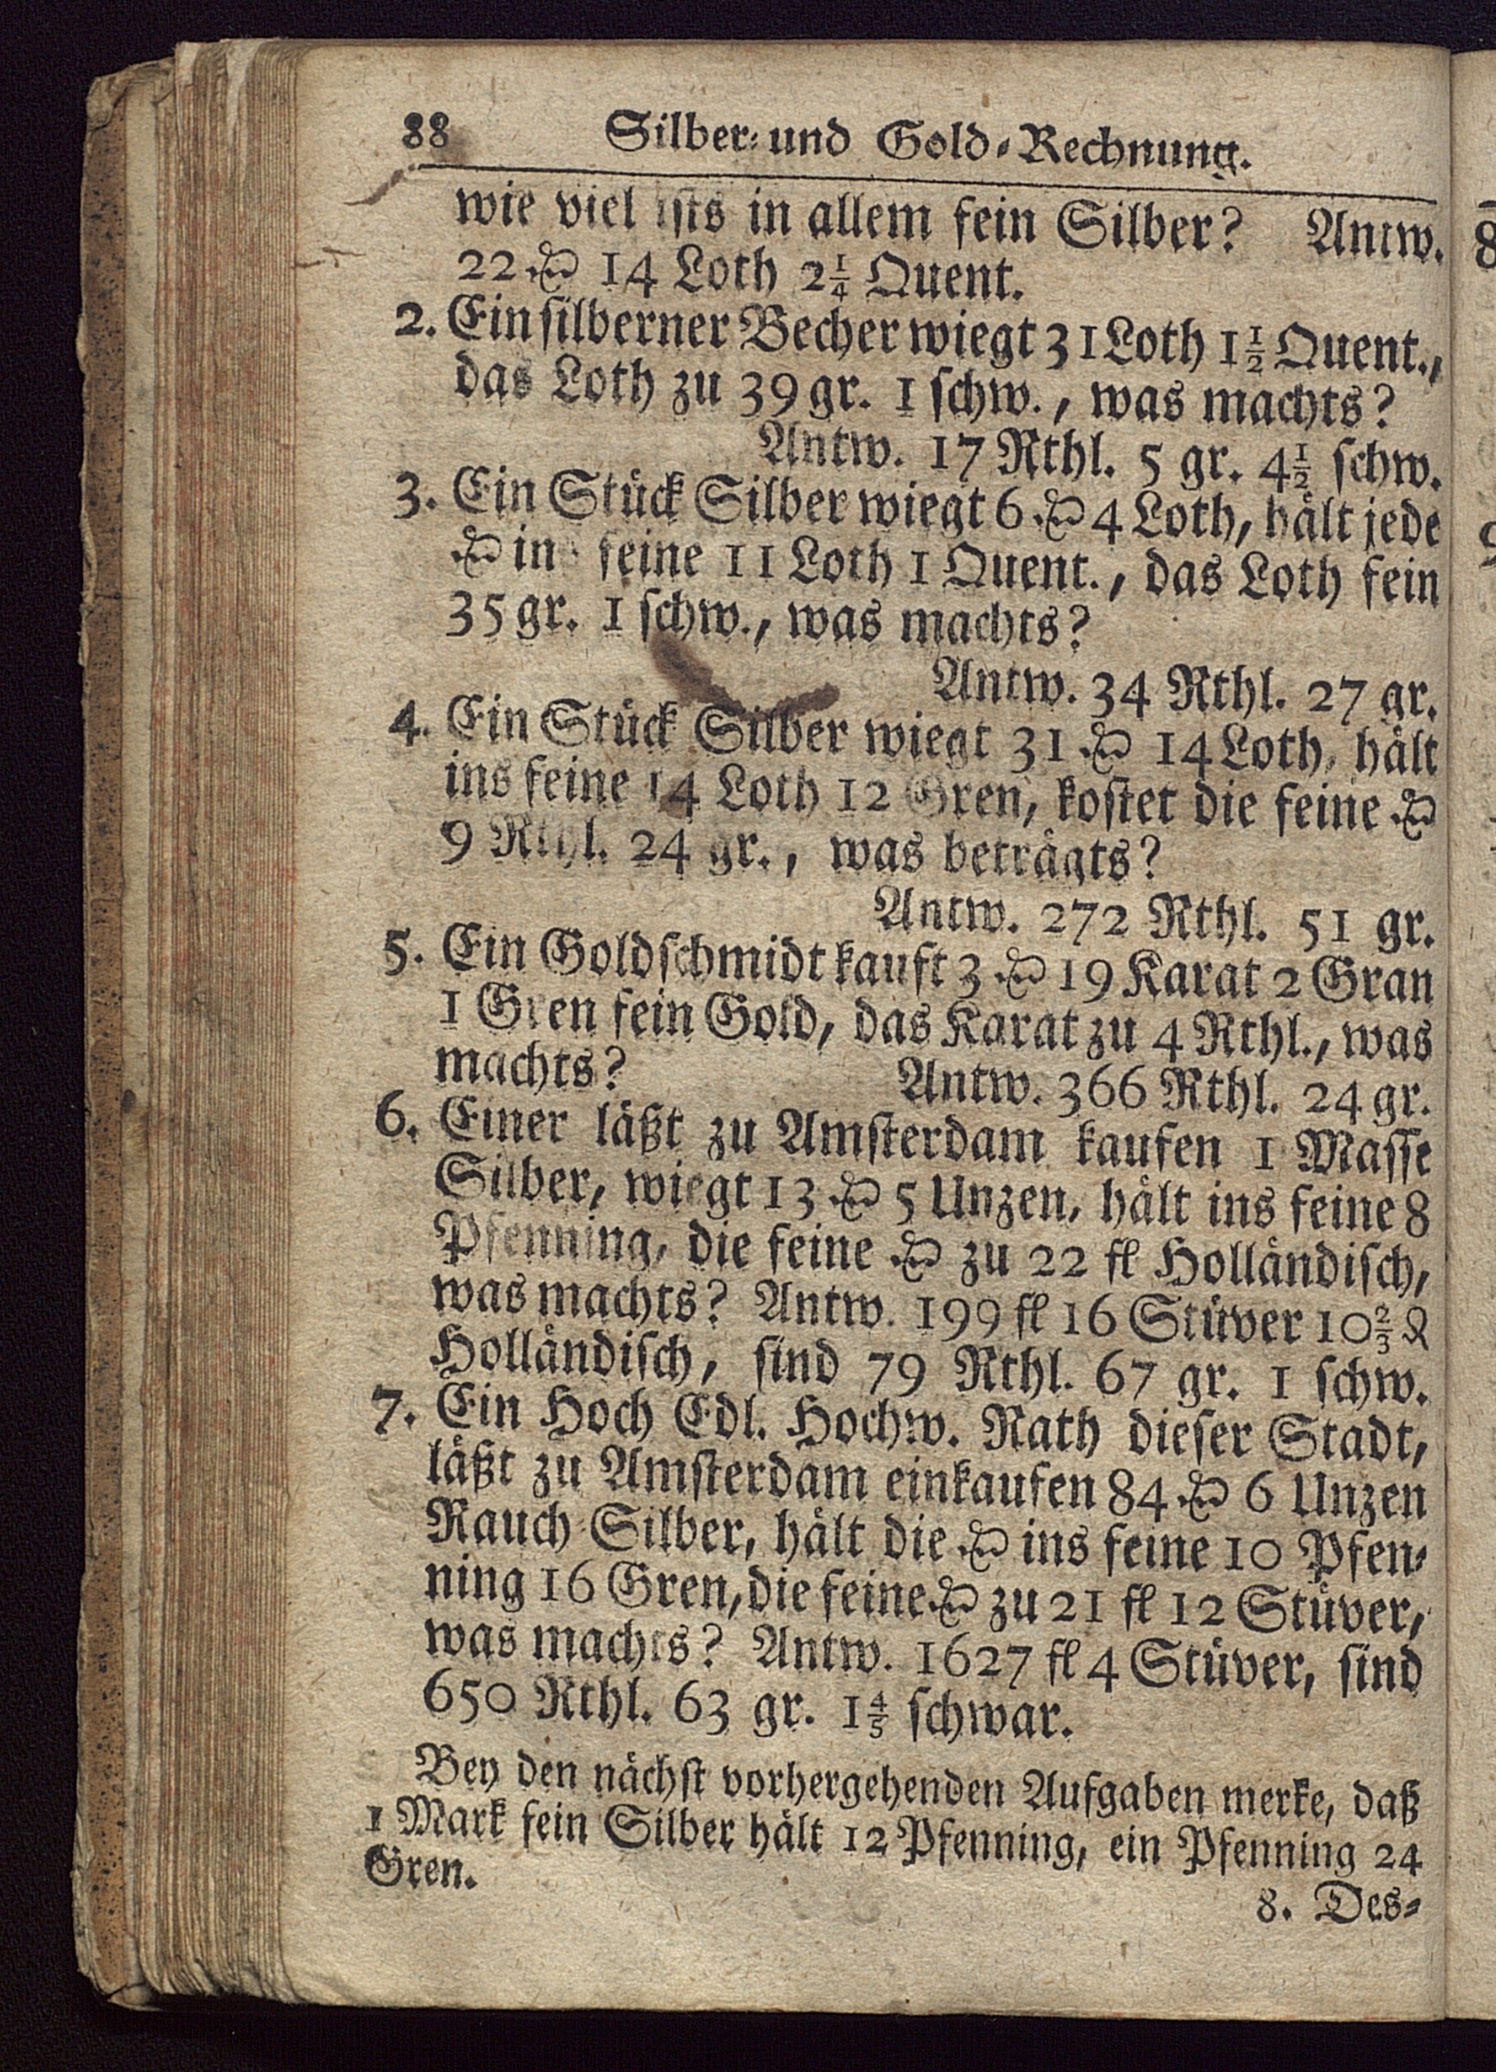 88 Silber- und Gold-Rechnung.
wie viel ists in allem fein Silber? Antw.
22 ℔ 14 Loth 2¼ Quent.
2. Ein silberner Becher wiegt 31 Loth 1½ Quent.,
das Loth zu 39 gr. 1 schw., was machts?
Antw. 17 Rthl. 5 gr. 4½ schw.
3. Ein Stück Silber wiegt 6 ℔ 4 Loth, hält jede
℔ ins feine 11 Loth 1 Quent., das Loth fein
35 gr. 1 schw., was machts?
Antw. 34 Rthl. 27 gr.
4. Ein Stück Silber wiegt 31 ℔ 14 Loth, hält
ins feine 14 Loth 12 Gren, kostet die feine ℔
9 Rthl. 24 gr., was beträgts?
Antw. 272 Rthl. 51 gr.
5. Ein Goldschmidt kauft 3 ℔ 19 Karat 2 Gran
1 Gren fein Gold, das Karat zu 4 Rthl., was
machts? Antw. 366 Rthl. 24 gr.
6. Einer läßt zu Amsterdam kaufen 1 Masse
Silber, wiegt 13 ℔ 5 Unzen, hält ins feine 8
Pfenning, die feine ℔ zu 22 fl Holländisch,
was machts? Antw. 199 fl 16 Stüver 10⅔ ₰
Holländisch, sind 79 Rthl. 67 gr. 1 schw.
7. Ein Hoch Edl. Hochw. Rath dieser Stadt,
läßt zu Amsterdam einkaufen 84 ℔ 6 Unzen
Rauch-Silber, hält die ℔ ins feine 10 Pfen-
ning 16 Gren, die feine ℔ zu 21 fl 12 Stüver,
was machts? Antw. 1627 fl 4 Stüver, sind
650 Rthl. 63 gr. 1⅘ schwar.
Bey den nächst vorhergehenden Aufgaben merke, daß
1 Mark fein Silber hält 12 Pfenning, ein Pfenning 24
Gren.
8. Des-